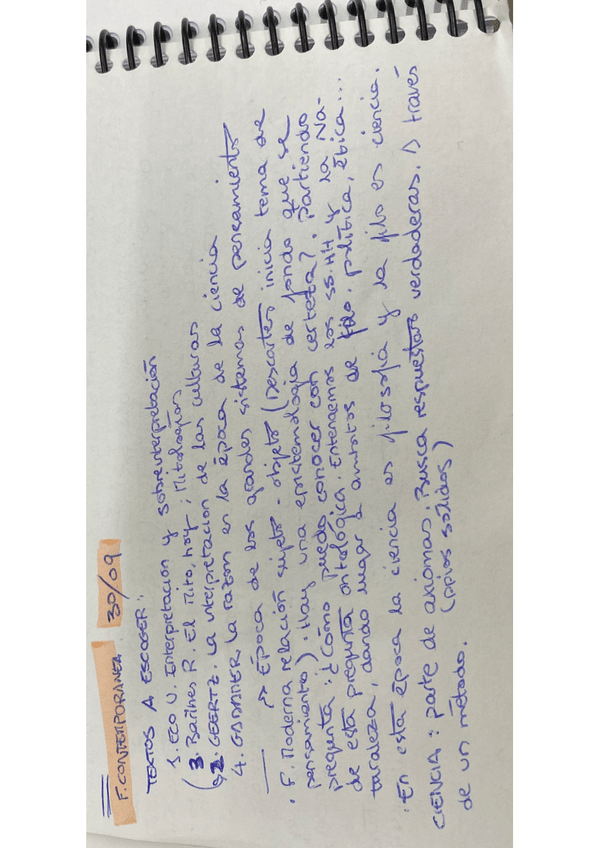 F. CONTEMPORANEA 30/09
TEXTOS A ESCOGER:
1. ECO U. Interpretación y sobreinterpretación
3. Barthes R. El Mito, hoy; Mitologías
2. GEERTZ. La interpretacion de las culturas
4. GADAMER. La razón en la época de la ciencia
→ Época de los grandes sistemas de pensamiento
· F. Moderna relación sujeto - objeto (Descartes inicia tema de
pensamiento). Hay una epistemología de fondo que se
pregunta: ¿Cómo puedo conocer con certeza?. Partiendo
de esta pregunta ontológica. Entendemos los SS.HH y la Na-
turaleza, dando lugar a ambitos de filo política, ética...
· En esta época la ciencia es filosofía y la filo es ciencia.
CIENCIA: parte de axiomas. Busca respuestas verdaderas. A través
(ppios solidos)
de un método.